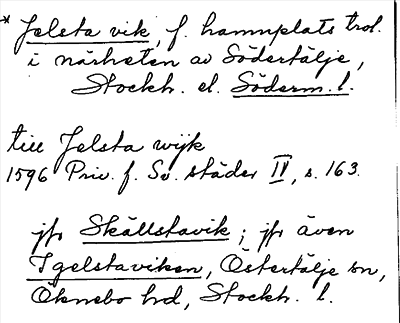 * Jelsta vik, f. hamnplats trol.
i närheten av Södertälje,
Stockh. el. Söderm. l.
till Jelsta wijk
1596 Priv. f. Sv. städer IV, s. 163.
jfr Skällstavik; jfr även
Igelstaviken, Östertälje sn,
Öknebo hd, Stockh. l.